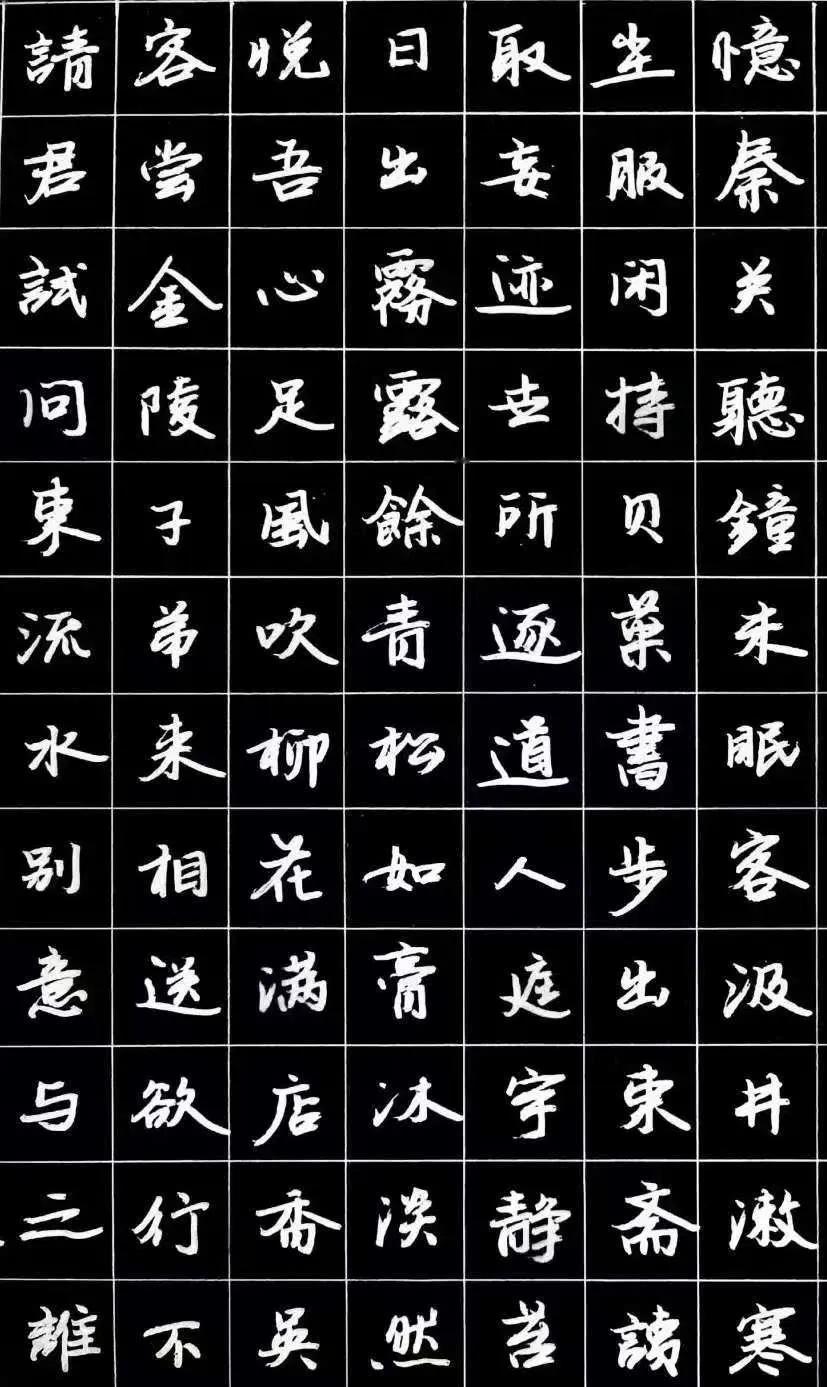 憶秦关聽鐘未眠客汲井漱寒
尘服闲持贝葉書步出東斋讀
取妄迹世所逐道人庭宇静苔
日出霧露餘青松如膏沐淡然
悦吾心足風吹柳花满店香吴
客尝金陵子弟来相送欲行不
請君試问東流水别意与之誰